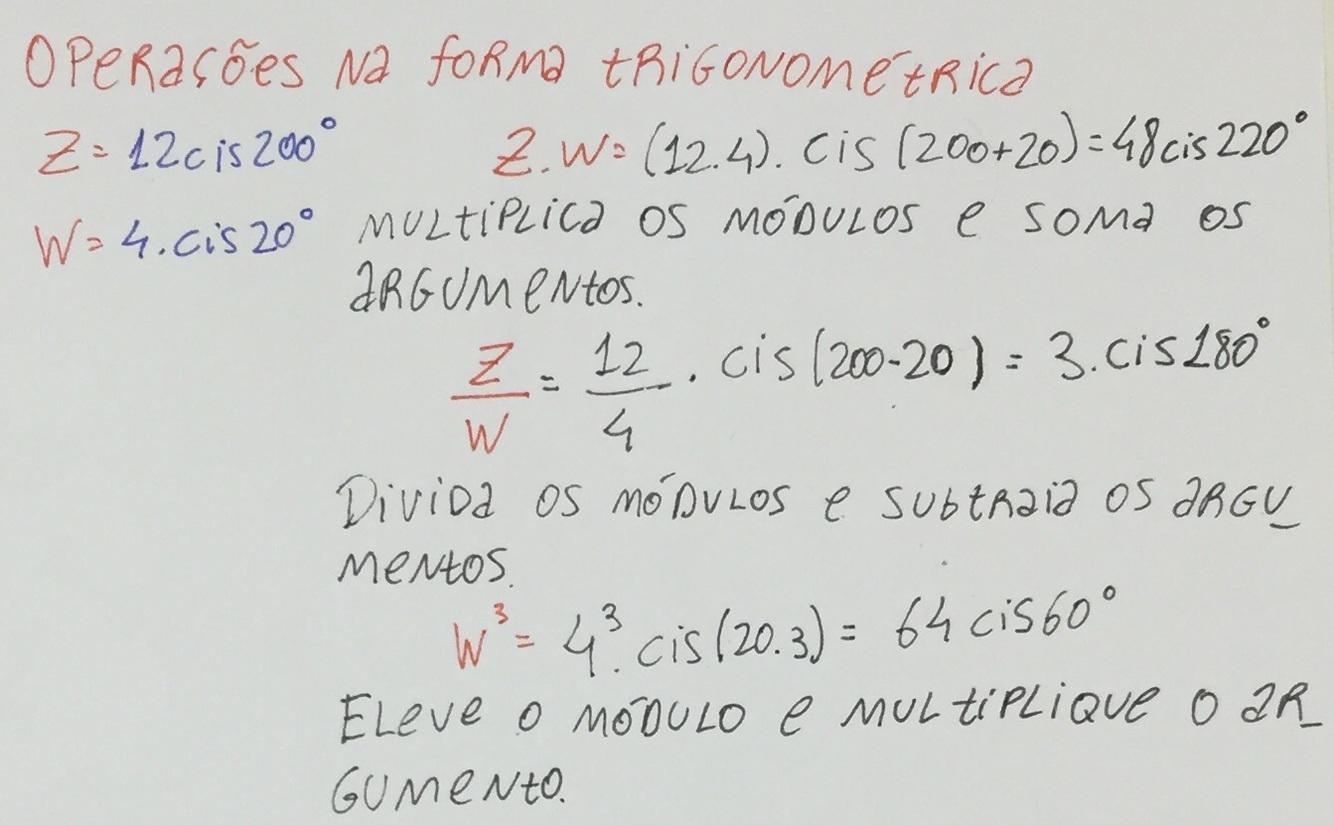 Operações na forma trigonométrica
Z = 12cis200° Z.W = (12.4). cis (200+20) = 48cis220°
W = 4.cis20° multiplica os módulos e soma os
argumentos.
Z/W = 12/4 . cis(200-20) = 3.cis180°
Divida os módulos e subtraia os argu_
mentos.
W³ = 4³. cis(20.3) = 64cis60°
Eleve o módulo e multiplique o ar_
gumento.